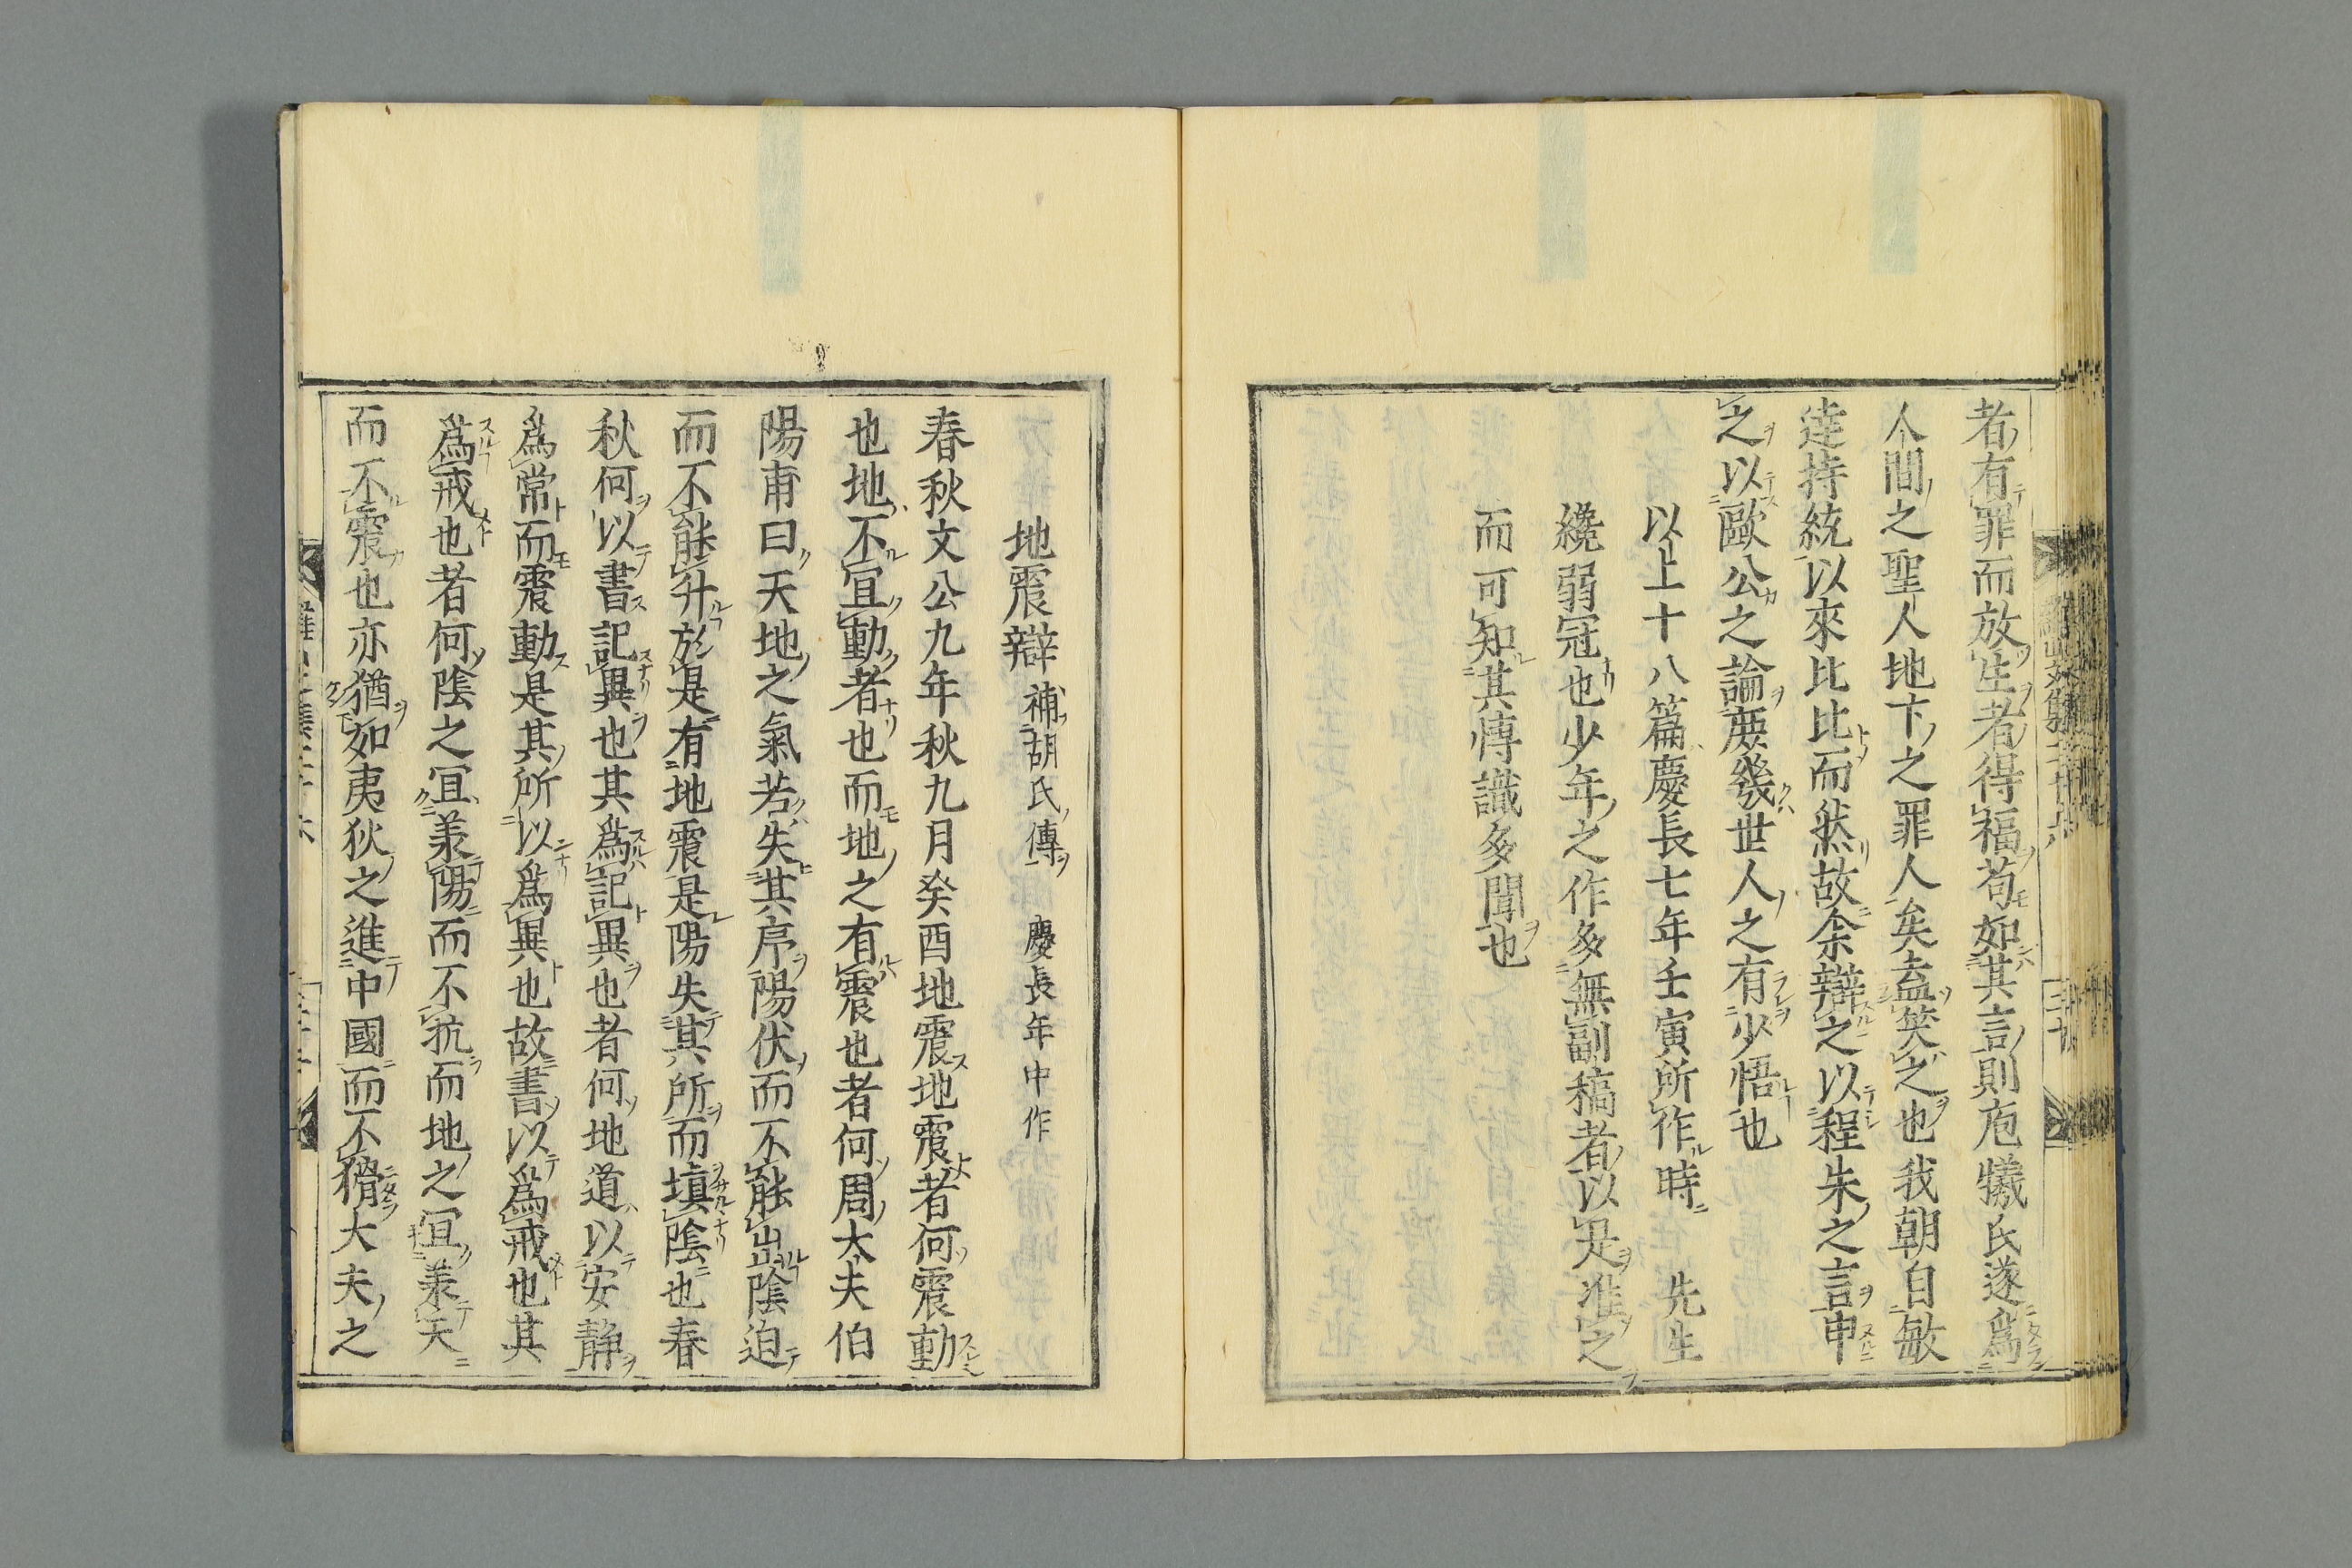 者有罪而放生者得福苟如其言則庖犧氏遂爲
人間之聖人地下之罪人矣盍笑之也我朝自敏
達持統以來比比而然故余辯之以程朱之言申
之以歐公之論庶幾世人之有少悟也
以上十八篇慶長七年壬寅所作時 先生
纔弱冠也少年之作多無副稿者以是准之
而可知其博識多聞也
地震辯 補胡氏傳 慶長年中作
春秋文公九年秋九月癸酉地震地震者何震動
也地不宜動者也而地之有震也者何周太夫伯
陽甫曰天地之氣若失其序陽伏而不能出陰迫
而不能升於是有地震是陽失其所而塡陰也春
秋何以書記異也其爲記異也者何地道以安靜
爲常而震動是其所以爲異也故書以爲戒也其
爲戒也者何陰之宜羕陽而不抗而地之宜羕天
而不震也亦猶如夷狄之進中國而不猾大夫之